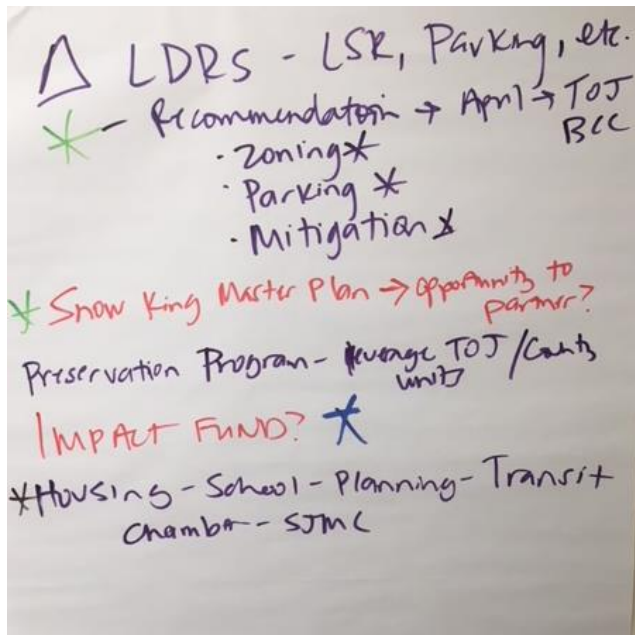 Δ LDRS - LSR, Parking, etc.
* - Recommendation → April → TOJ
BCC
· Zoning *
· Parking *
· Mitigation *
* Snow King Master Plan → opportunity to
partner?
Preservation Program - leverage TOJ / County
units
IMPACT FUND? *
* Housing - School - Planning - Transit
Chamber - SJMC